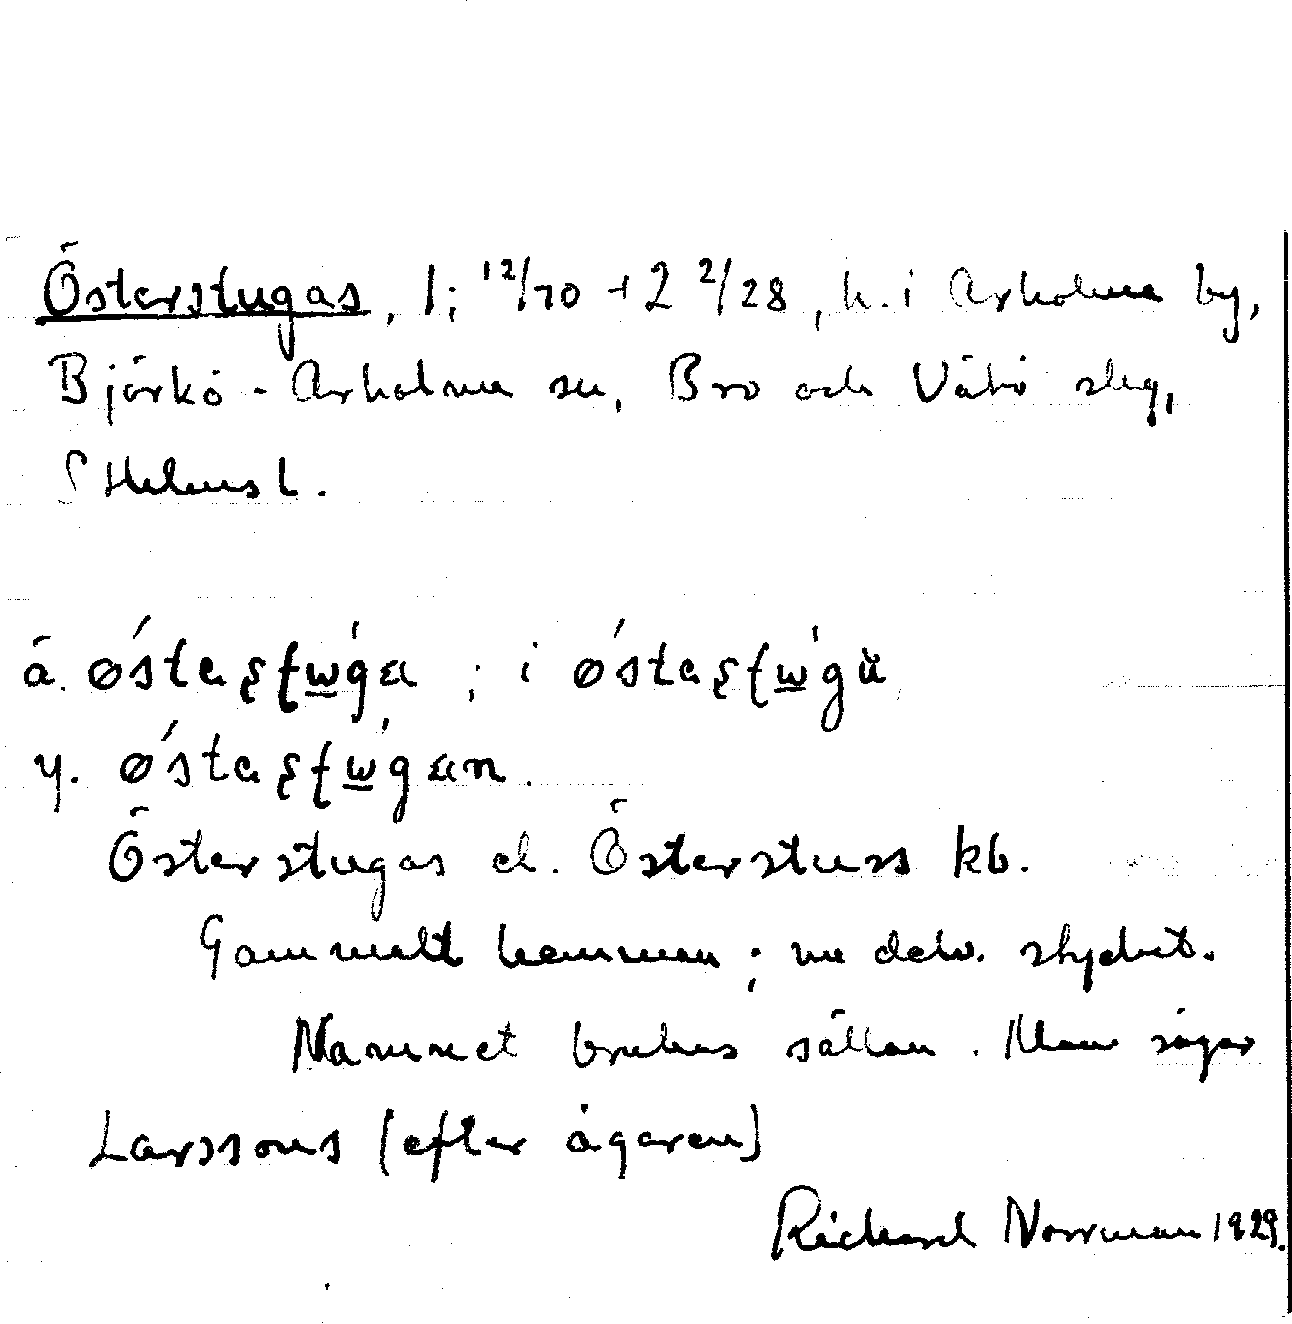 Österstugas, 1; 12/70 + 2 2/28, h. i Arholma by,
Björkö-Arholma sn, Bro och Vätö slg,
SHelms l.
å. østaṣṭωga ; i østaṣṭωgä
y. østaṣṭωgan.
Österstugas el. Österstuss kb.
Gammalt hemman; nu delv. styckat.
Namnet brukas sällan. Man säger
Larssons (efter ägaren)
Richard Norrman 1929.